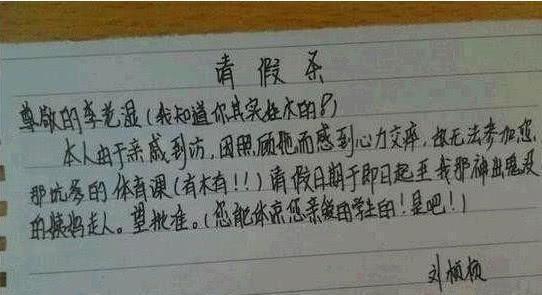 请假条
尊敬的李老湿(我知道你其实姓木的!)
本人由于亲戚到访,因照顾她而感到心力交瘁,故无法参加您
那坑爹的体育课(有木有!!)请假日期于即日起至我那神出鬼没
的姨妈走人。望批准。(您能体凉您亲爱的学生的!是吧!)
刘桢桢